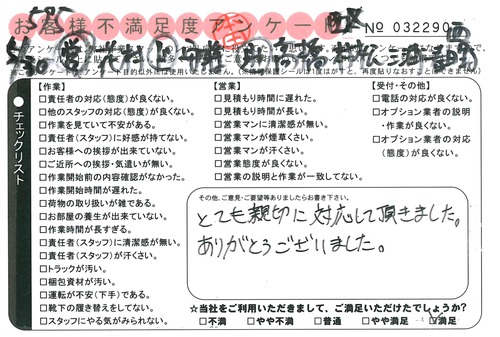 お客様不満足度アンケート
No 032290
チェックリスト
【作業】
□責任者の対応(態度)が良くない。
□他のスタッフの対応(態度)が良くない。
□作業を見ていて不安がある。
□責任者(スタッフ)に好感が持てない。
□お客様への挨拶が出来ていない。
□ご近所への挨拶・気遣いが無い。
□作業開始前の内容確認がなかった。
□作業開始時間が遅れた。
□荷物の取り扱いが雑である。
□お部屋の養生が出来ていない。
□作業時間が長すぎる。
□責任者(スタッフ)に清潔感が無い。
□責任者(スタッフ)が汗くさい。
□トラックが汚い。
□梱包資材が汚い。
□運転が不安(下手)である。
□靴下の履き替えをしてない。
□スタッフにやる気がみられない。
【営業】
□見積もり時間に遅れた。
□見積もり時間が長い。
□営業マンに清潔感が無い。
□営業マンが煙草くさい。
□営業マンが汗くさい。
□営業態度が良くない。
□営業の説明と作業が一致してない。
【受付・その他】
□電話の対応が良くない。
□オプション業者の説明
・作業が良くない。
□オプション業者の対応
(態度)が良くない。
その他、ご意見・ご要望等ありましたらお書き下さい。
とても親切に対応して頂きました。
ありがとうございました。
☆当社をご利用いただきまして、ご満足いただけたでしょうか?
□不満 □やや不満 □普通 □やや満足 ☑満足